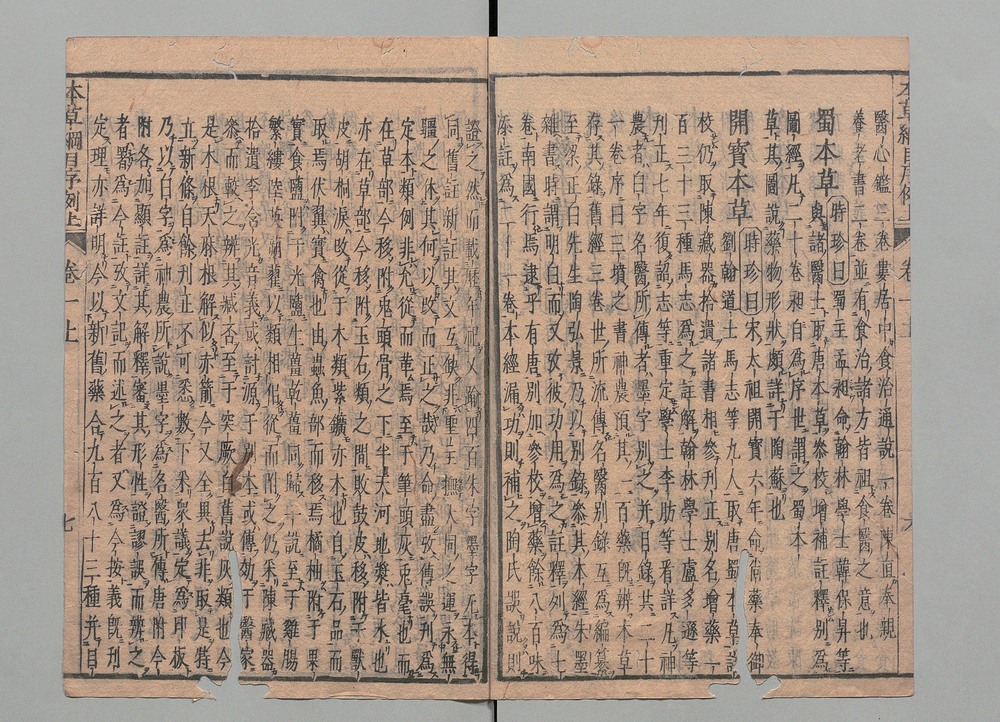 醫心鑑三卷婁居中食治通說一卷陳直奉親
養老書二卷並有食治諸方皆祖食醫之意也
蜀本草 時珍曰蜀主孟昶命翰林學士韓保昇等
與諸醫士取唐本草參校增補註釋別為
圖經凡二十卷昶自為序世謂之蜀本
草其圖說藥物形狀頗詳于陶蘇也
開寶本草 時珍曰宋太祖開寶六年命尚藥奉御
劉翰道士馬志等九人取唐蜀本草詳
校仍取陳藏器拾遺諸書相參刊正別名增藥一
百三十三種馬志為之註解翰林學士盧多遜等
刊正七年復詔志等重定學士李昉等看詳凡神
農者白字名醫所傳者墨字別之并目錄共二十
一卷序曰三墳之書神農預其一百藥既辨本草
存其錄舊經三卷世所流傳名醫別錄互為編纂
至梁正白先生陶弘景乃以別錄參其本經朱墨
雜書時謂明白而又攷彼功用為之註釋列為七
卷南國行焉逮乎有唐別加參校增藥餘八百味
添註為二十一卷本經漏功則補之陶氏誤說則
證之然而載歷年祀又踰四百朱字墨字无本得
同舊註新註其文互缺非聖主撫大同之運永無
疆之休其何以改而正之哉乃命盡攷傳誤刊為
定本類例非允從而革焉至于筆頭灰兎毫也而
在草部今移附兎頭骨之下半天河地漿皆水也
亦在草部今移附玉石類之間敗鼓皮移附于獸
皮胡桐淚改從于木類紫鑛亦木也自玉石品而
取焉伏翼實禽也由蟲魚部而移焉橘柚附于果
實食鹽附于光鹽生薑乾薑同歸一說至于雞腸
繁縷陸英蒴藋以類相似從而附之仍采陳藏器
拾遺李含光音義或討源于別本或傳効于醫家
叅而較之辨其臧否至于突厥白舊說灰類也今
是木根天麻根解似赤箭今又全異去非取是特
立新條自餘刊正不可悉數下采眾議定為印板
乃以白字為神農所說墨字為名醫所傳唐附今
附各加顯註詳其解釋審其形性證謬誤而辨之
者署為今註攷文記而述之者又為今按義既刊
定理亦詳明今以新舊藥合九百八十三種并目
本草綱目序例上 卷一上 七